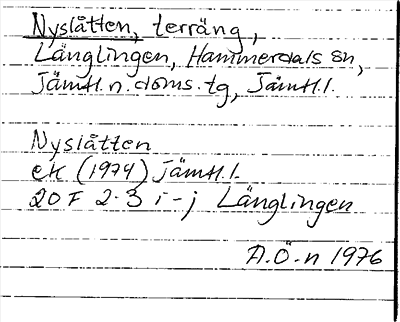 Nyslåtten, terräng,
Länglingen, Hammerdals sn,
Jämtl.n.doms.tg, Jämtl.l.
Nyslåtten
ek (1974) Jämtl.l.
20 F 2-3 i-j Länglingen
A.Ö-n 1976